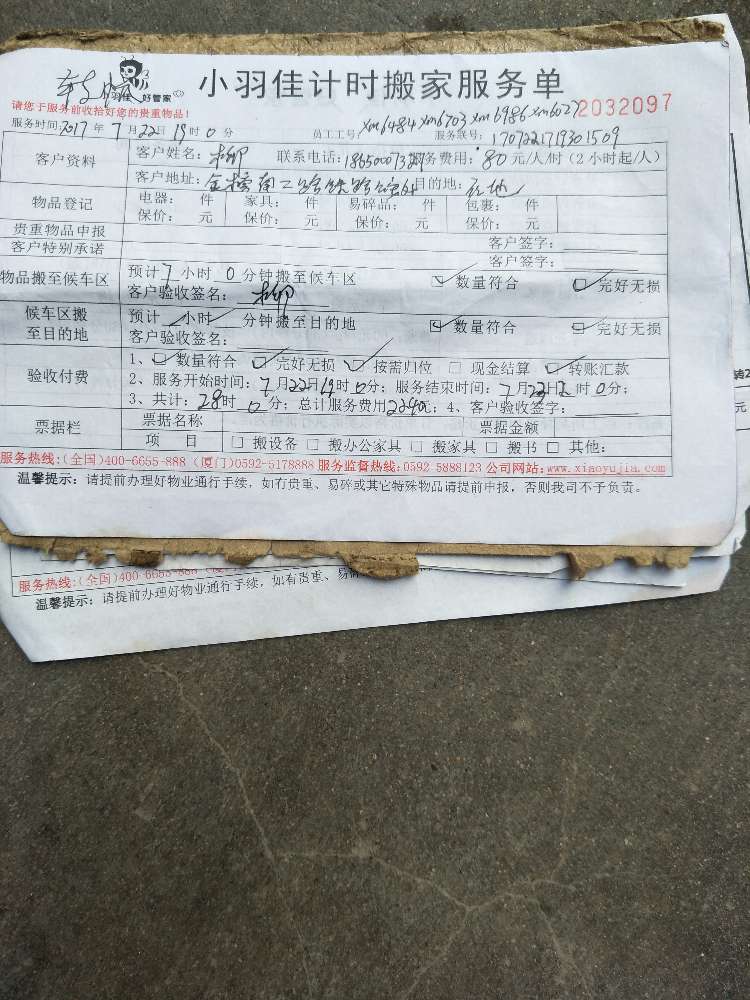 小羽佳 好管家 小羽佳计时搬家服务单
请您于服务前收拾好您的贵重物品!
2032097
服务时间:2017年7月22日19时0分 员工工号:xm6484 xm6703 xm6986 xm6027 服务联号:1707221719301509
客户资料 客户姓名:柳 联系电话:186500073 服务费用:80元/人/时(2小时起/人)
客户地址:金榜南二路铁路 目的地:在地
物品登记 电器: 件 家具: 件 易碎品: 件 包裹: 件
保价: 元 保价: 元 保价: 元 保价: 元
贵重物品申报 客户签字:
客户特别承诺 客户签字:
物品搬至候车区 预计7小时0分钟搬至候车区 ☑数量符合 ☑完好无损
客户验收签名:柳
候车区搬至目的地 预计 小时 分钟搬至目的地 ☑数量符合 ☑完好无损
客户验收签名:
验收付费 1、☑数量符合 ☑完好无损 ☑按需归位 □现金结算 ☑转账汇款
2、服务开始时间:7月22日19时0分;服务结束时间:7月23日2时0分;
3、共计:28时0分;总计服务费用2240元;4、客户验收签字:
票据栏 票据名称 票据金额
项 目 □搬设备 □搬办公家具 □搬家具 □搬书 □其他:
服务热线:(全国)400-6655-888 (厦门)0592-5178888 服务监督热线:0592-5888123 公司网站:www.xiaoyujia.com
温馨提示:请提前办理好物业通行手续,如有贵重、易碎或其它特殊物品请提前申报,否则我司不予负责。
元
服务热线:(全国)400-6655-888
温馨提示:请提前办理好物业通行手续,如有贵重、易